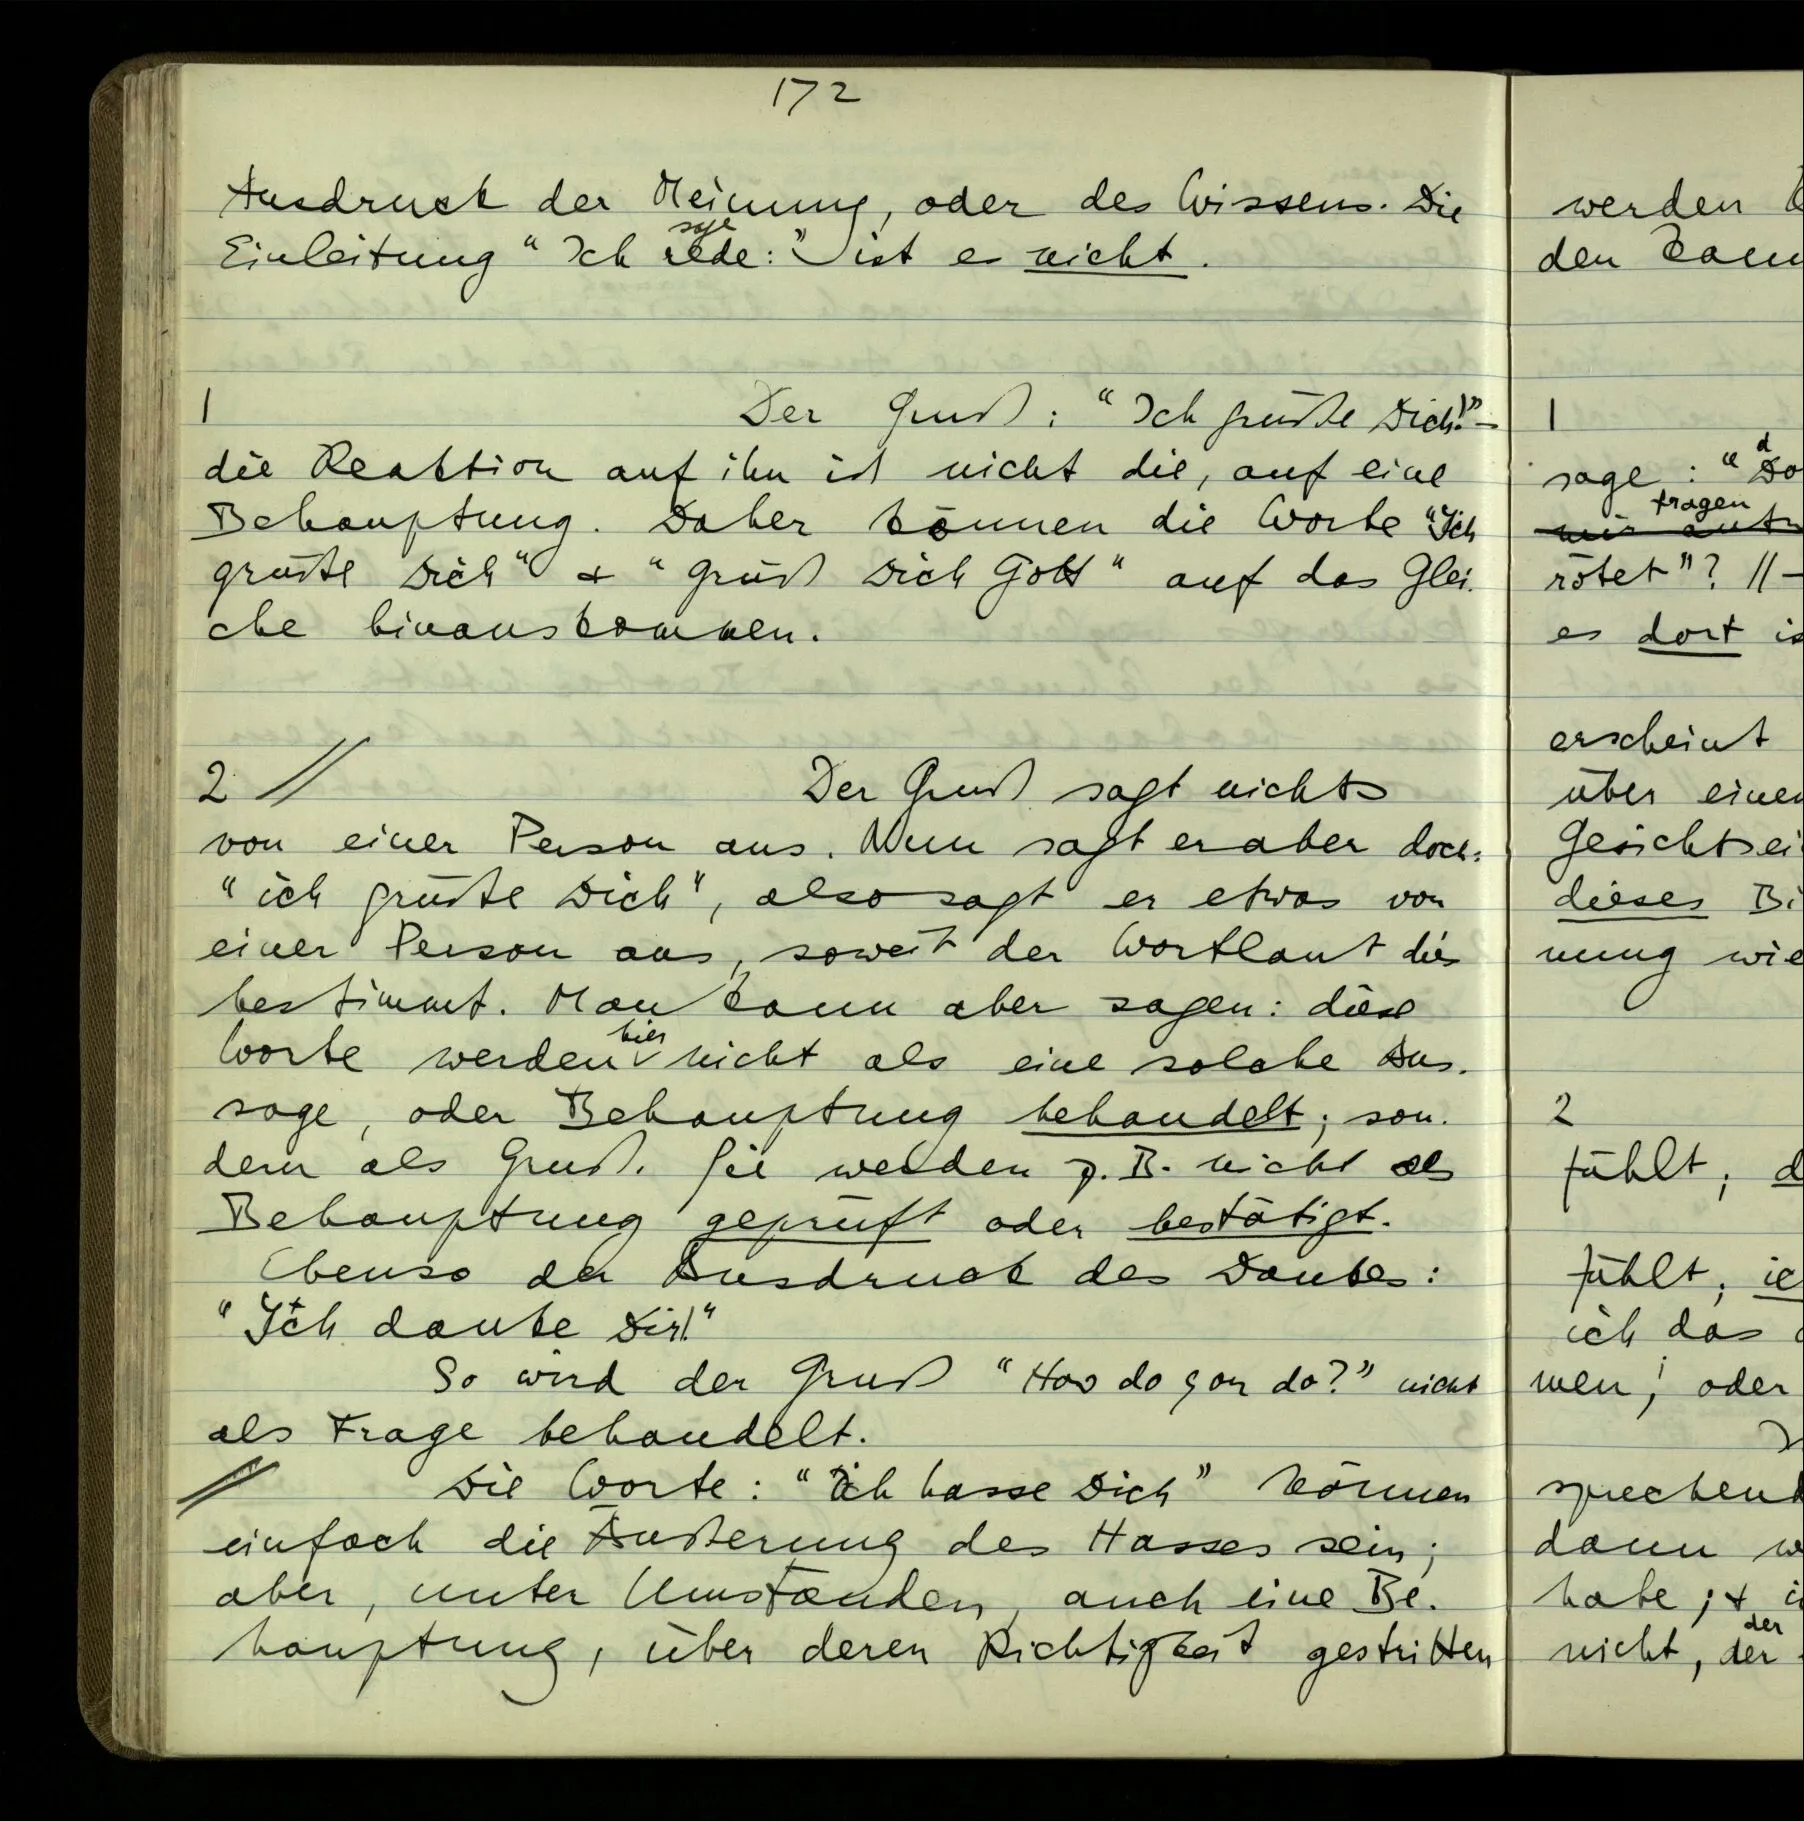 172
Ausdruck der Meinung, oder des Wissens. Die
sage
Einleitung “Ich rede:” ist es nicht.
1 Der Gruß: “Ich grüße Dich!” –
die Reaktion auf ihn ist nicht die, auf eine
Behauptung. Daher können die Worte “Ich
grüße Dich” & “Grüß Dich Gott” auf das Glei-
che hinauskommen.
2 // Der Gruß sagt nichts
von einer Person aus. Nun sagt er aber doch:
“ich grüße Dich”, also sagt er etwas von
einer Person aus, soweit der Wortlaut dies
bestimmt. Man kann aber sagen: diese
hier
Worte werden nicht als eine solche Aus-
sage, oder Behauptung behandelt; son-
dern als Gruß. Sie werden z.B. nicht als
Behauptung geprüft oder bestätigt.
Ebenso der Ausdruck des Dankes:
“Ich danke Dir!”
So wird der Gruß “How do you do?” nicht
als Frage behandelt.
// Die Worte: “ich hasse Dich” können
einfach die Äußerung des Hasses sein;
aber, unter Umständen, auch eine Be-
hauptung, über deren Richtigkeit gestritten
werden
den
1
sage: “
tragen
rötet”? // –
es dort
erscheint
über einen
Gesichts
dieses
nung wie
2
fühlt;
fühlt;
ich das
men; oder
sprechend
dann
habe; &
der
nicht, der